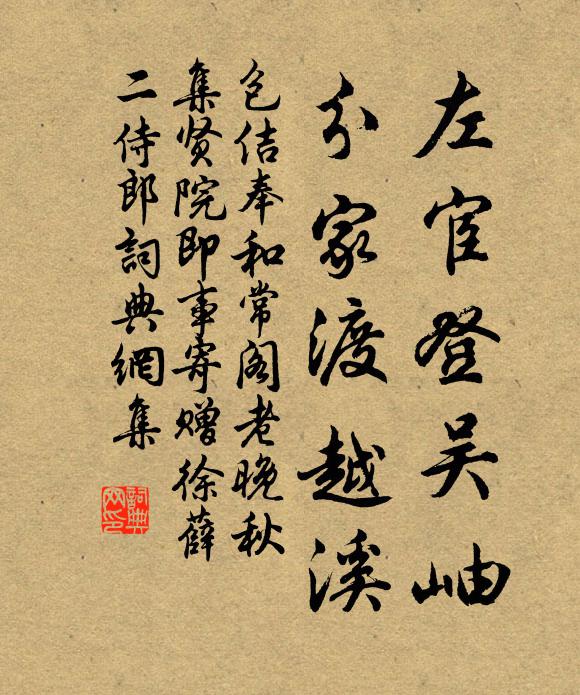 左宦登吴岫
分家渡越溪
包佶奉和常阁老晚秋
集贤院即事寄赠徐薛
二侍郎詞典網集
詞典網印